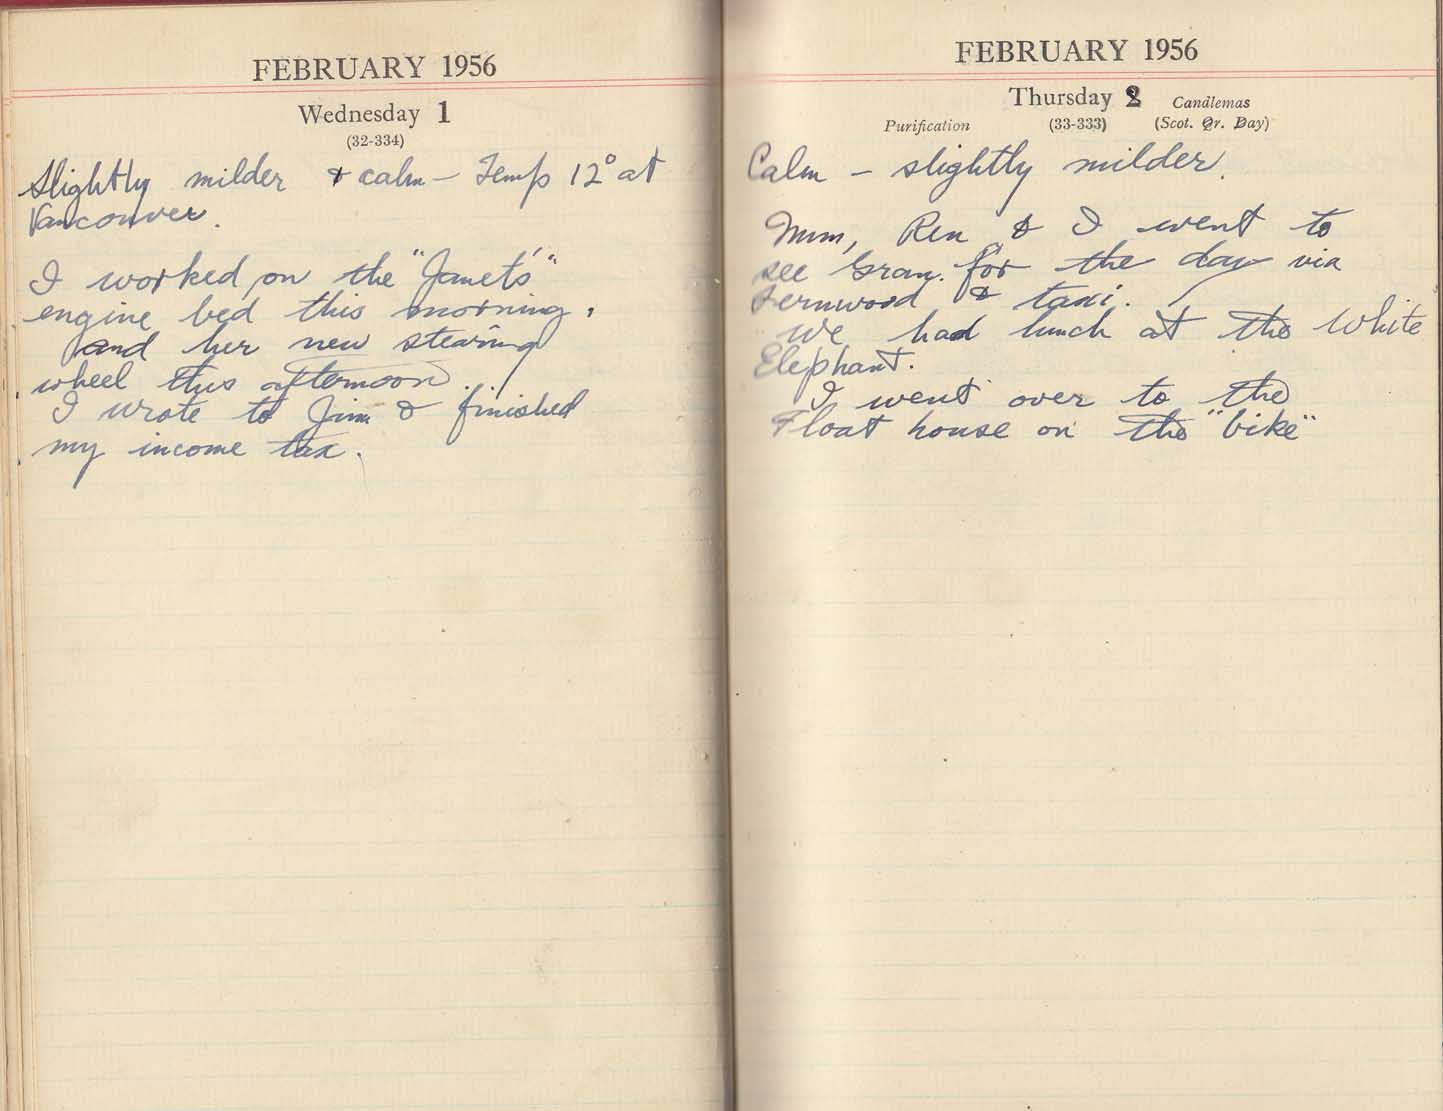 FEBRUARY 1956
Wednesday 1
(32-334)
Slightly milder & calm – Temp 12° at
Vancouver.
I worked on the "Janet's"
engine bed this morning,
and her new stearing
wheel this afternoon.
I wrote to Jim & finished
my income tax.
FEBRUARY 1956
Thursday 2 Candlemas
Purification (33-333) (Scot. Qr. Day)
Calm – slightly milder.
Mum, Ren & I went to
see Gran. for the day via
Fernwood & taxi.
We had lunch at the White
Elephant.
I went over to the
Float house on the "bike"